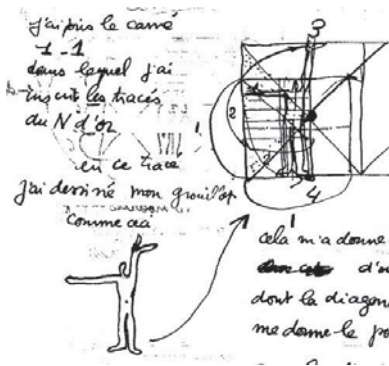 j'ai pris le carré
1 - 1
dans lequel j'ai
inscrit les tracés
du N d'or
en ce tracé
j'ai dessiné mon
comme cea
3
2
1
4
1
cela m'a donné
d'
dont la diagon
me donne le po